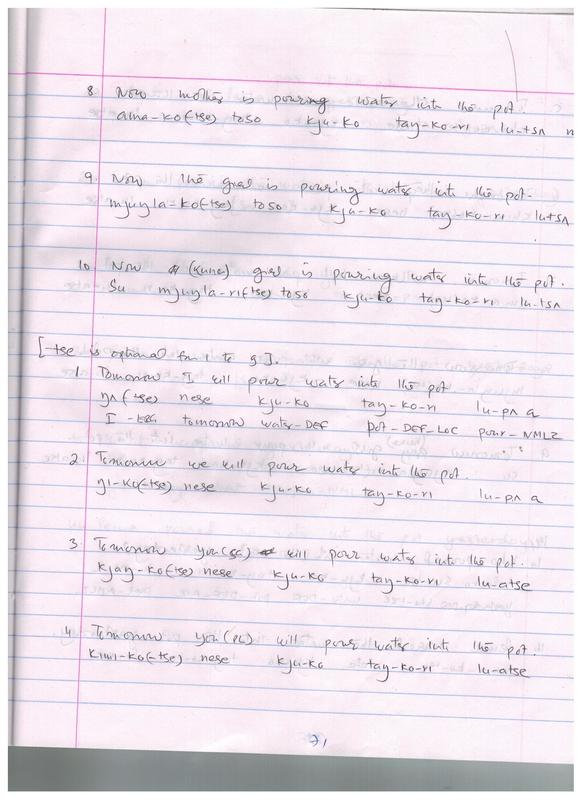 8. Now mother is pouring water into the pot.
ama-ko(-tse) toso kju-ko tay-ko-ri lu-tsʌ
9. Now the girl is pouring water into the pot.
mjuyla-ko(-tse) toso kju-ko tay-ko-ri lu-tsʌ
10. Now girl is pouring water into the pot.
Su mjuyla-ri(-tse) toso kju-ko tay-ko-ri lu-tsʌ
[-tse is optional for 1 to 9].
1. Tomorrow I will pour water into the pot
ŋʌ(-tse) nese kju-ko tay-ko-ri lu-pʌ a
I -ERG tomorrow water-DEF pot-DEF-LOC pour-NMLZ
2. Tomorrow we will pour water into the pot.
ŋi-ko(-tse) nese kju-ko tay-ko-ri lu-pʌ a
3. Tomorrow you(SG) will pour water into the pot.
kjaŋ-ko(-tse) nese kju-ko tay-ko-ri lu-atse
4. Tomorrow you(PL) will pour water into the pot.
kimi-ko(-tse) nese kju-ko tay-ko-ri lu-atse
71